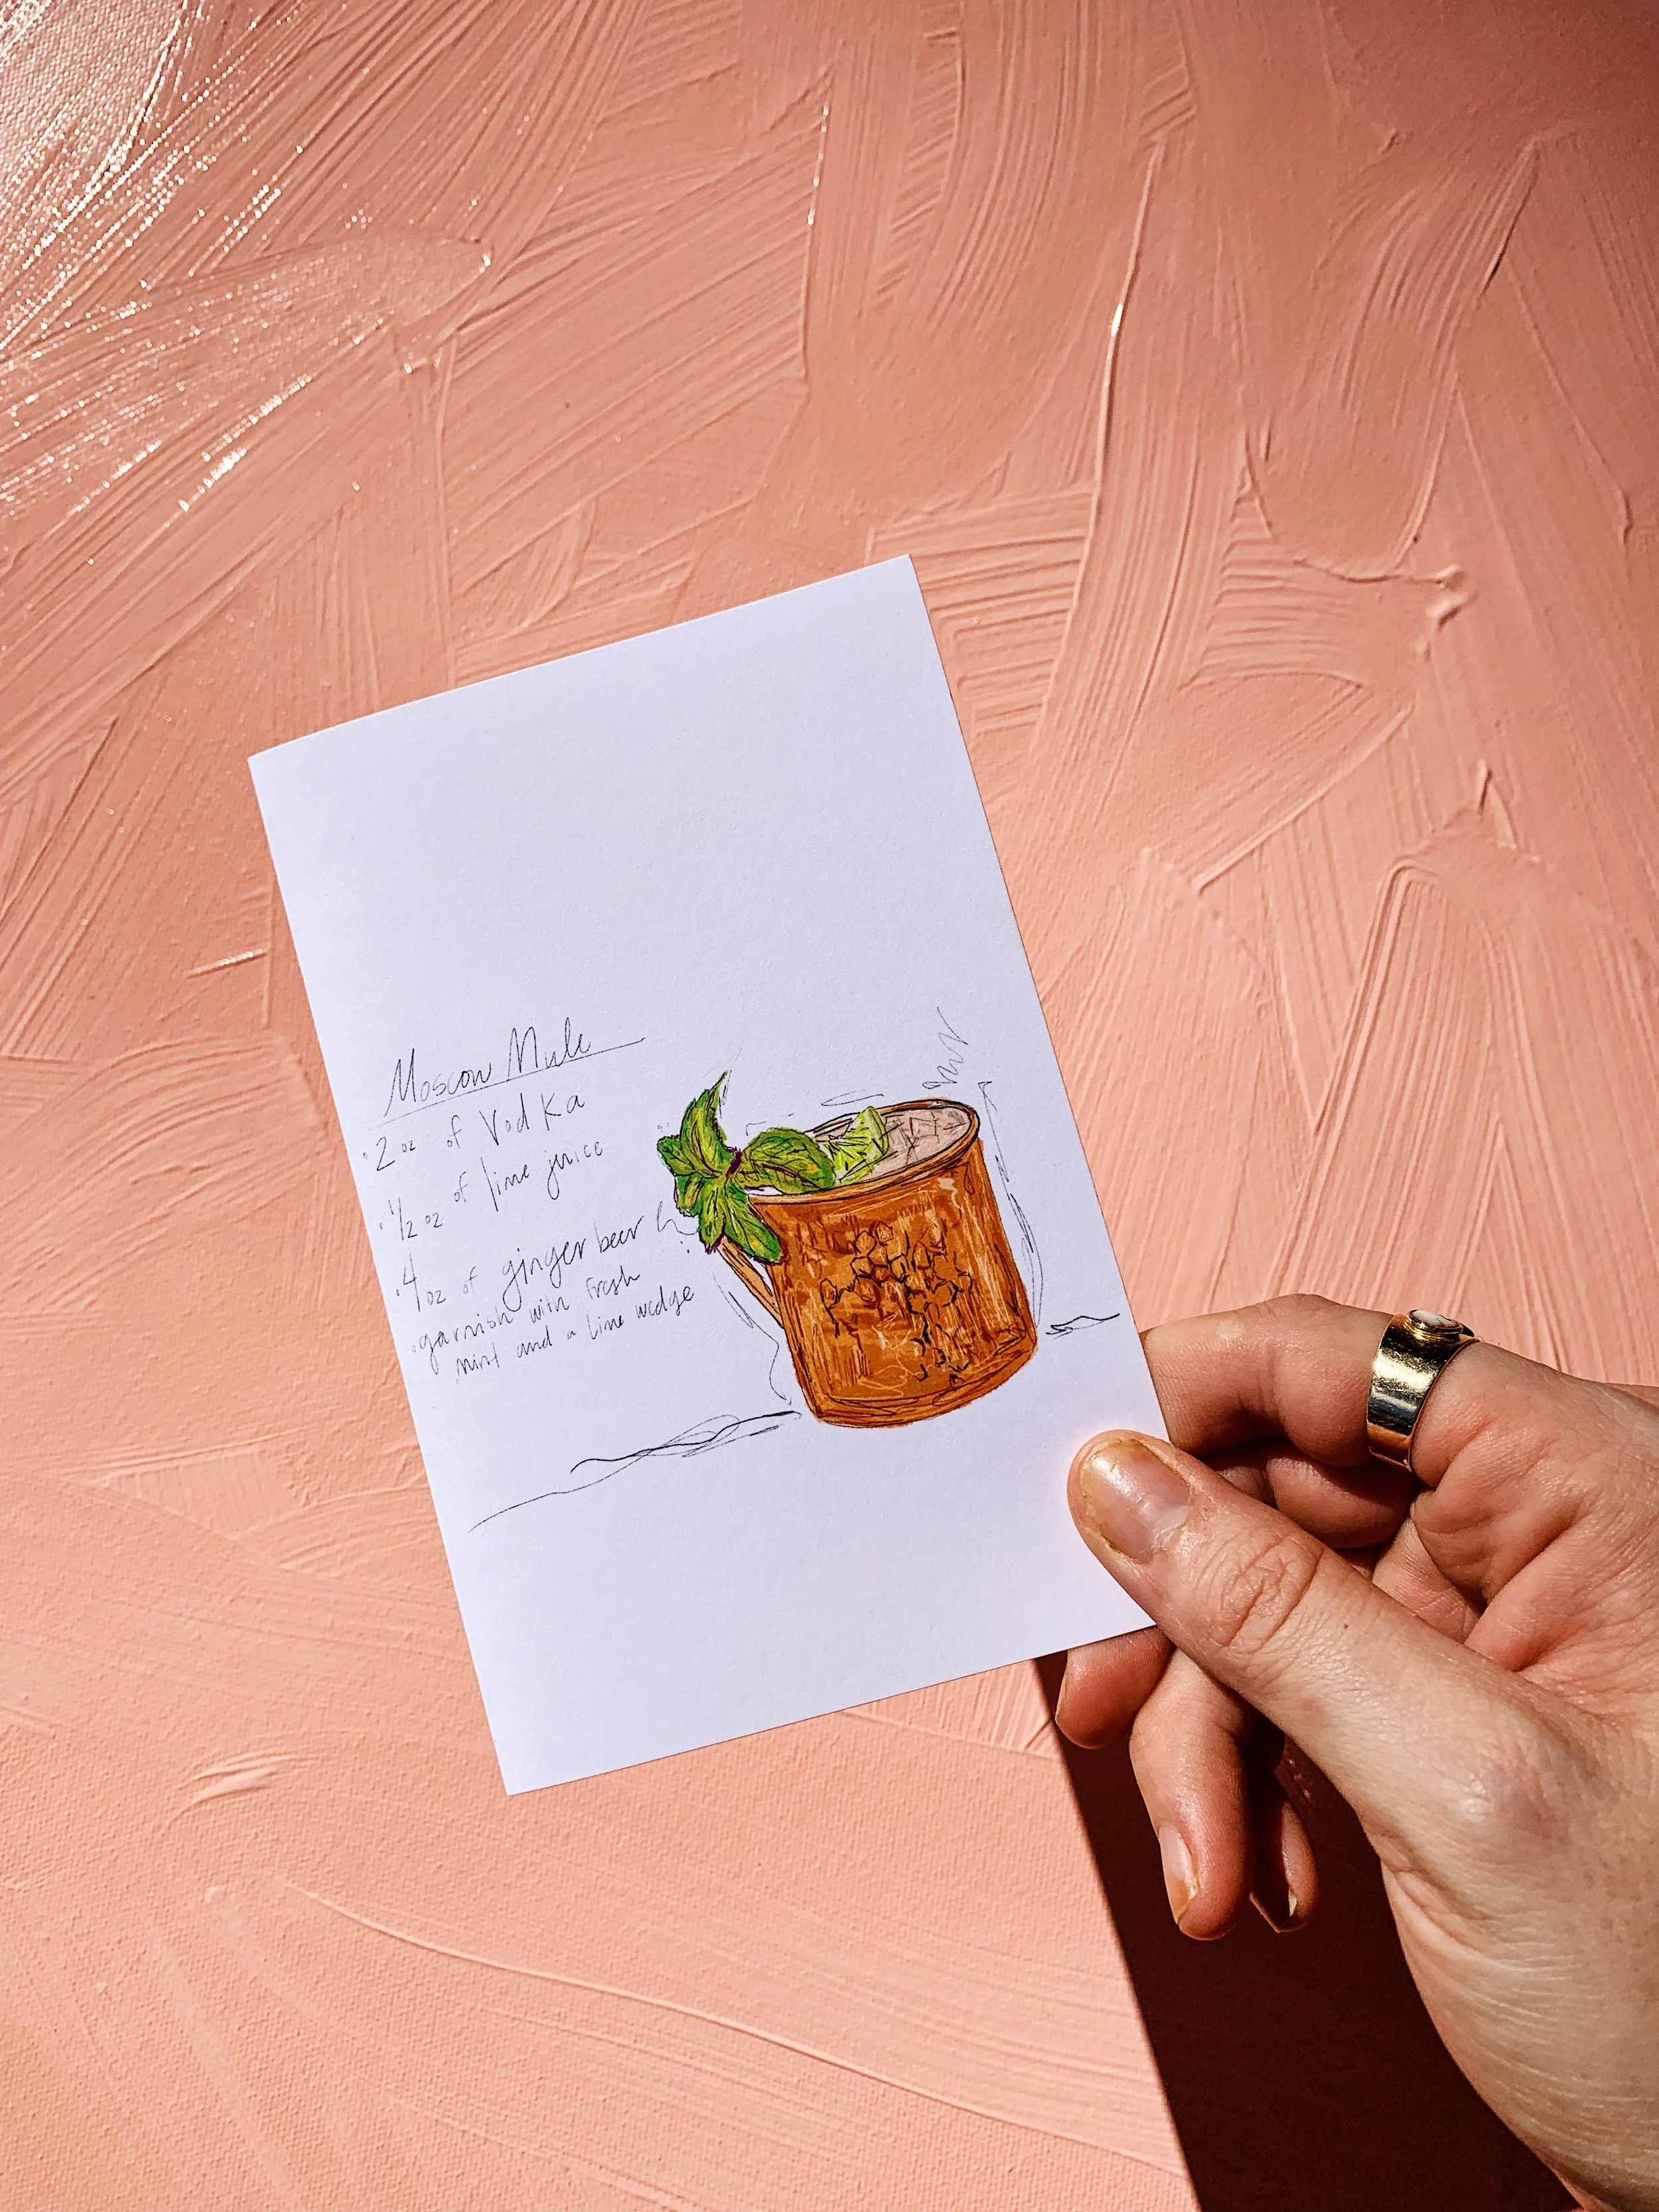 Moscow Mule
· 2 oz of Vodka
· 1/2 oz of lime juice
· 4 oz of ginger beer
· garnish with fresh
mint and a lime wedge